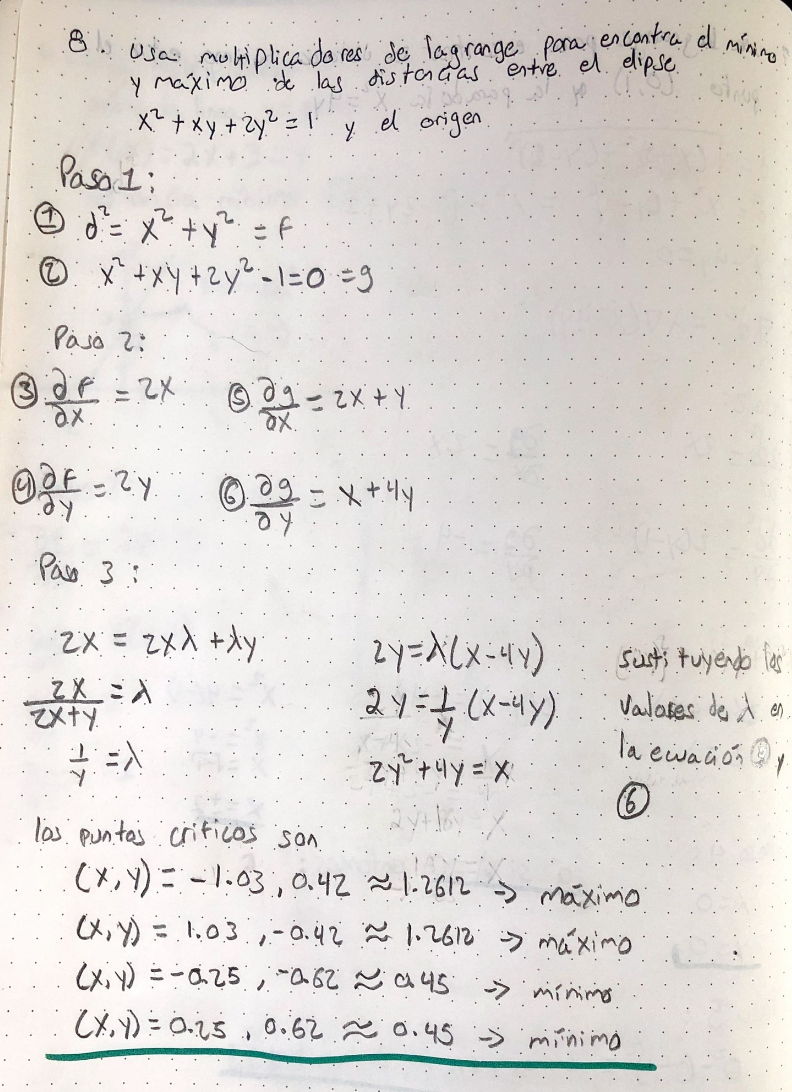 8. Usa multiplicadores de lagrange para encontra el mínimo
y máximo de las distancias entre el elipse
x² + xy + 2y² = 1 y el origen
Paso 1:
① d² = x² + y² = f
② x² + xy + 2y² - 1 = 0 = g
Paso 2:
③ ∂f/∂x = 2x ⑤ ∂g/∂x = 2x + y
④ ∂f/∂y = 2y ⑥ ∂g/∂y = x + 4y
Paso 3:
2x = 2xλ + λy 2y = λ(x - 4y)
2x/2x+y = λ 2y = 1/y (x - 4y)
1/y = λ 2y² + 4y = x
sustituyendo los
valores de λ en
la ecuación ⑤ y
⑥
los puntos críticos son
(x,y) = -1.03, 0.42 ≈ 1.2612 → máximo
(x,y) = 1.03, -0.42 ≈ 1.2612 → máximo
(x,y) = -0.25, -0.62 ≈ 0.45 → mínimo
(x,y) = 0.25, 0.62 ≈ 0.45 → mínimo